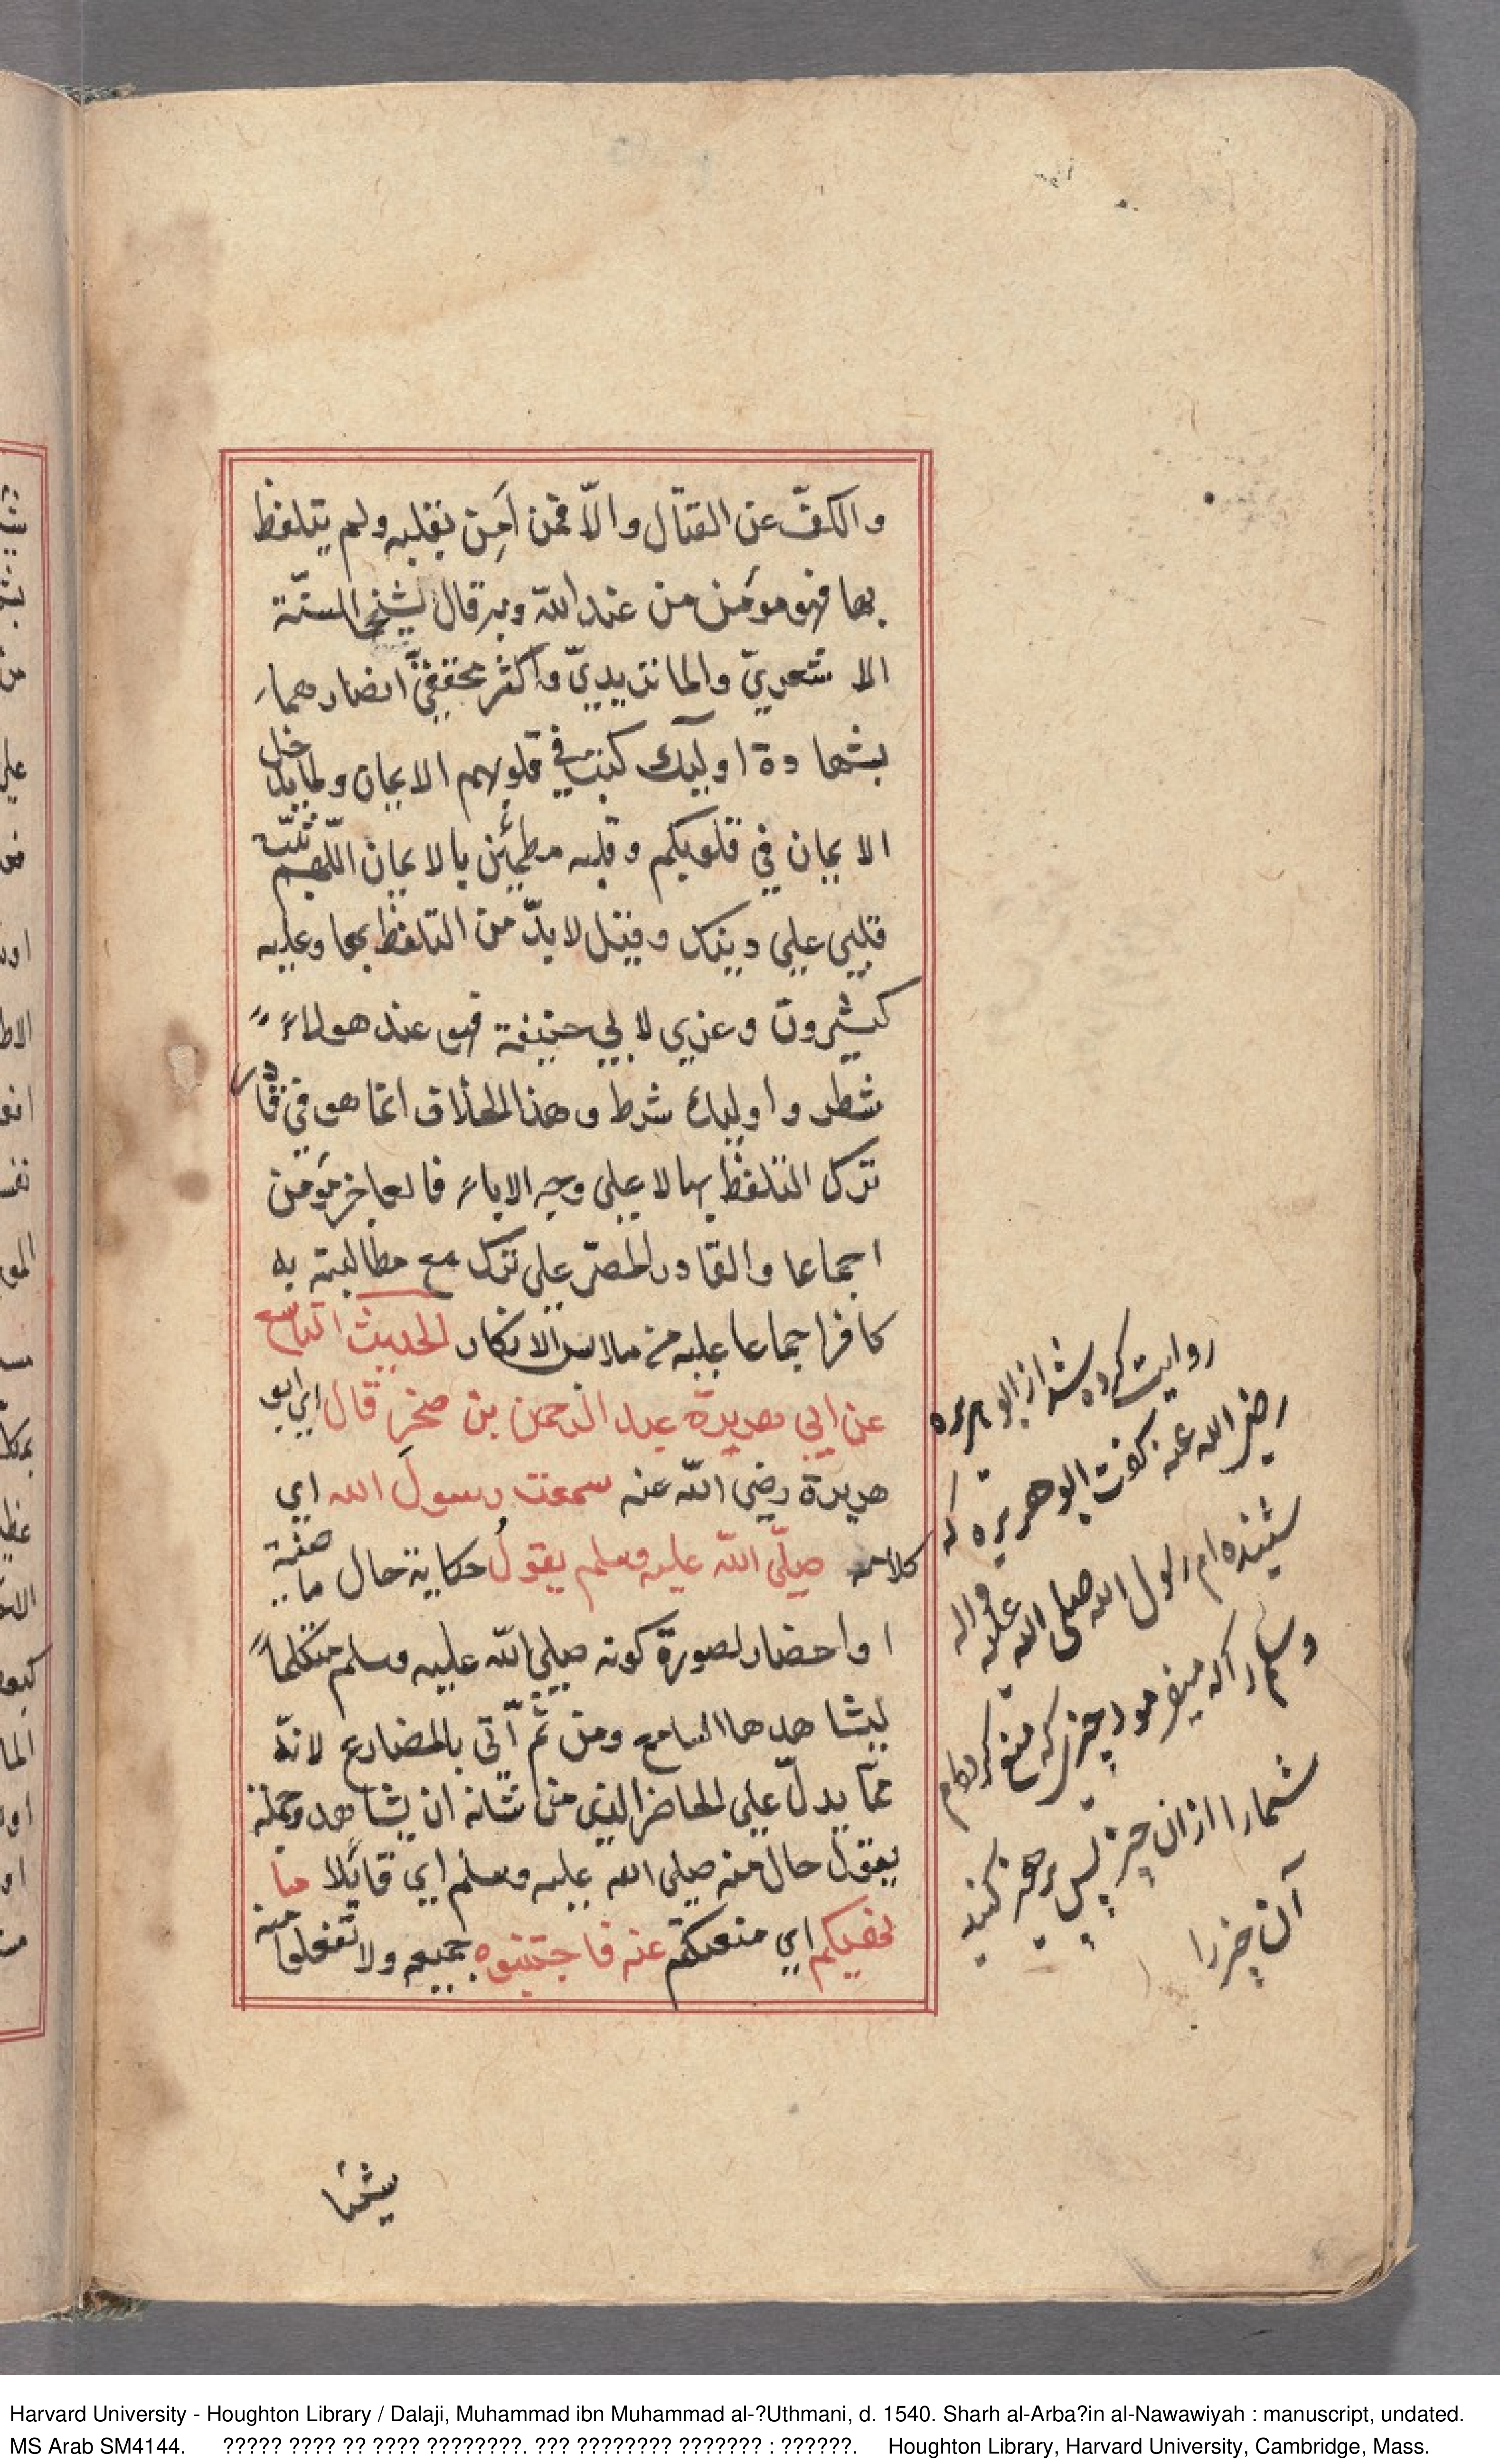 والكفّ عن القتال والّا فمن آمن بقلبه ولم يتلفظ
بها فهو مومن من عند الله وبه قال لشيخا السنّة
الاشعريّ والماتريديّ واكثر محققيّ انصارهما
بشهادة اوليك كتب في قلوبهم الايمان ولما يدخل
الايمان في قلوبكم وقلبه مطمئن بالايمان اللّهم ثبّت
قلبي علي دينك وقيل لا بدّ من التلفظ بها وعليه
كثيرون وعزي لابي حنيفة فهي عند هولاء
شطر واوليك شرط وهذا الخلاف انما هو في قادر
ترك التلفظ بها لا علي وجه الاباء فالعاجز مومن
اجماعا والقادر المصرّ علي تركه مع مطالبته به
كافر اجماعا عليه من ملابس الانكار الحديث التاسع
عن ابي هريرة عبد الرحمن بن صخر قال اي ابو
هريرة رضي الله عنه سمعت رسول الله اي
كلامه صلّي الله عليه وسلم يقول حكاية حال ماضية
او احضار لصورة كونه صلي الله عليه وسلم متكلماً
ليشاهدها السامع ومن ثم أتي بالمضارع لانه
مما يدلّ علي الحاضر الذي من شانه ان يشاهد وجملة
يقول حال منه صلي الله عليه وسلم اي قايلا ما
نهيتكم اي منعتكم عنه فاجتنبوه جميعه ولا تفعلوا منه
شيئا
روايت كرده شد از ابو هريره
رضي الله عنه كفت ابو هريره كه
شنيده ام رسول الله صلى الله عليه واله
وسلم را كه ميفرمود چيزى كه منع كرده ام
شمارا از ان چيز پس پرهيز كنيد
آن چيز را
Harvard University - Houghton Library / Dalaji, Muhammad ibn Muhammad al-?Uthmani, d. 1540. Sharh al-Arba?in al-Nawawiyah : manuscript, undated.
MS Arab SM4144. ????? ???? ?? ???? ????????. ??? ???????? ??????? : ??????. Houghton Library, Harvard University, Cambridge, Mass.